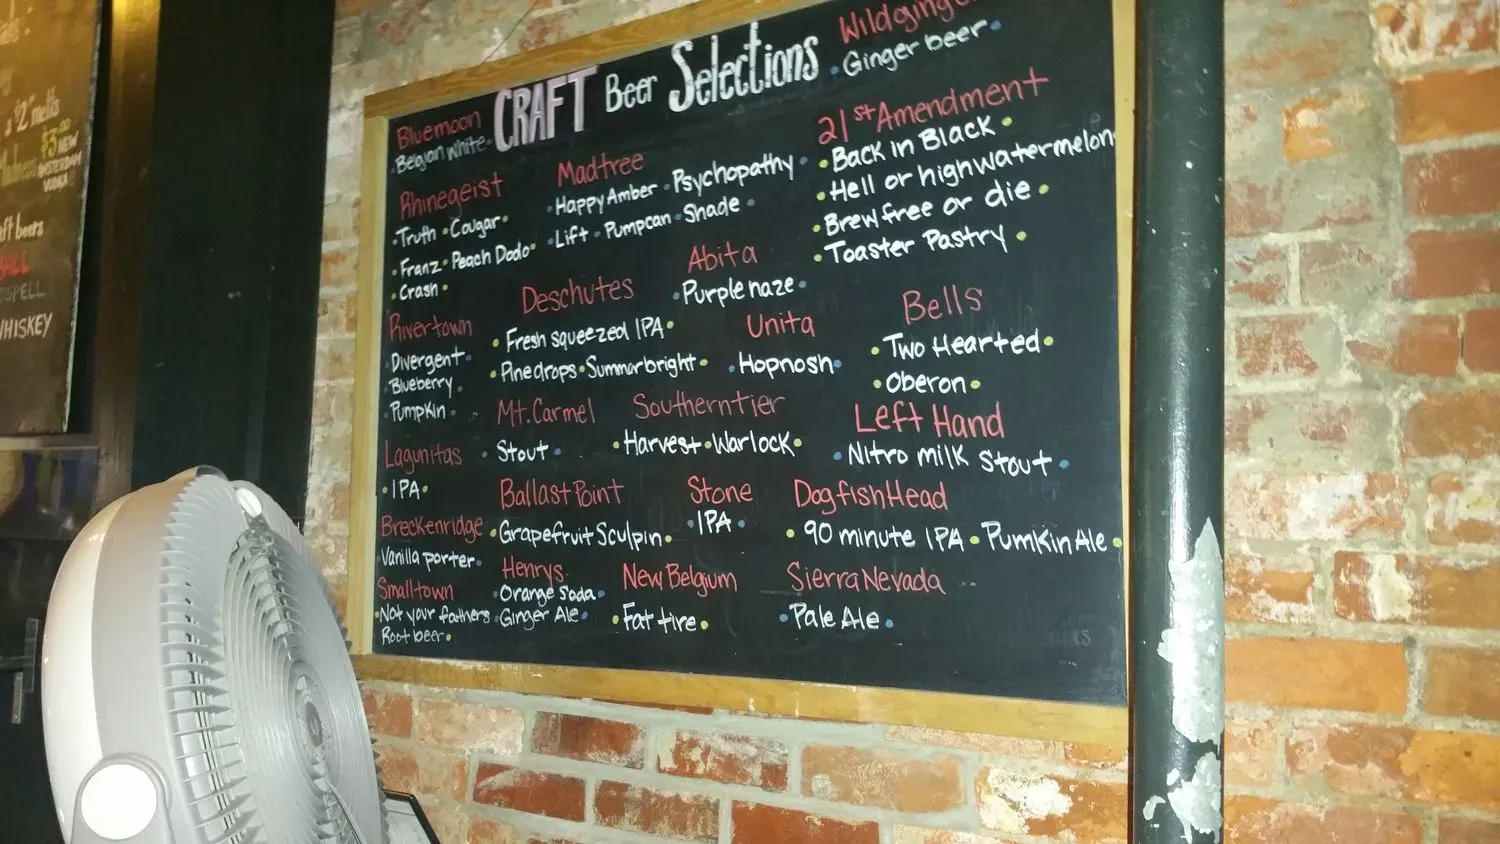 $2 melts
$3.00 NEW
AMSTERDAM
VODKA
beers
WHISKEY
CRAFT Beer Selections
Bluemoon
Belgian White
Rhinegeist
Truth • Cougar
Franz • Peach Dodo
Crash
Rivertown
Divergent
Blueberry
Pumpkin
Lagunitas
IPA
Breckenridge
Vanilla porter
Smalltown
Not your fathers
Root beer
Madtree
Happy Amber • Psychopathy
Lift • Pumpcan • Shade
Deschutes
Fresh squeezed IPA
Pinedrops • Summarbright
Abita
Purple haze
Unita
Hopnosh
Mt. Carmel
Stout
Southerntier
Harvest • Warlock
Ballast Point
Grapefruit Sculpin
Stone
IPA
Henrys
Orange Soda
Ginger Ale
New Belgium
Fat tire
Wildginger
Ginger beer
21st Amendment
Back in Black
Hell or highwatermelon
Brew free or die
Toaster Pastry
Bells
Two Hearted
Oberon
Left Hand
Nitro milk stout
Dogfish Head
90 minute IPA • Pumkin Ale
Sierra Nevada
Pale Ale